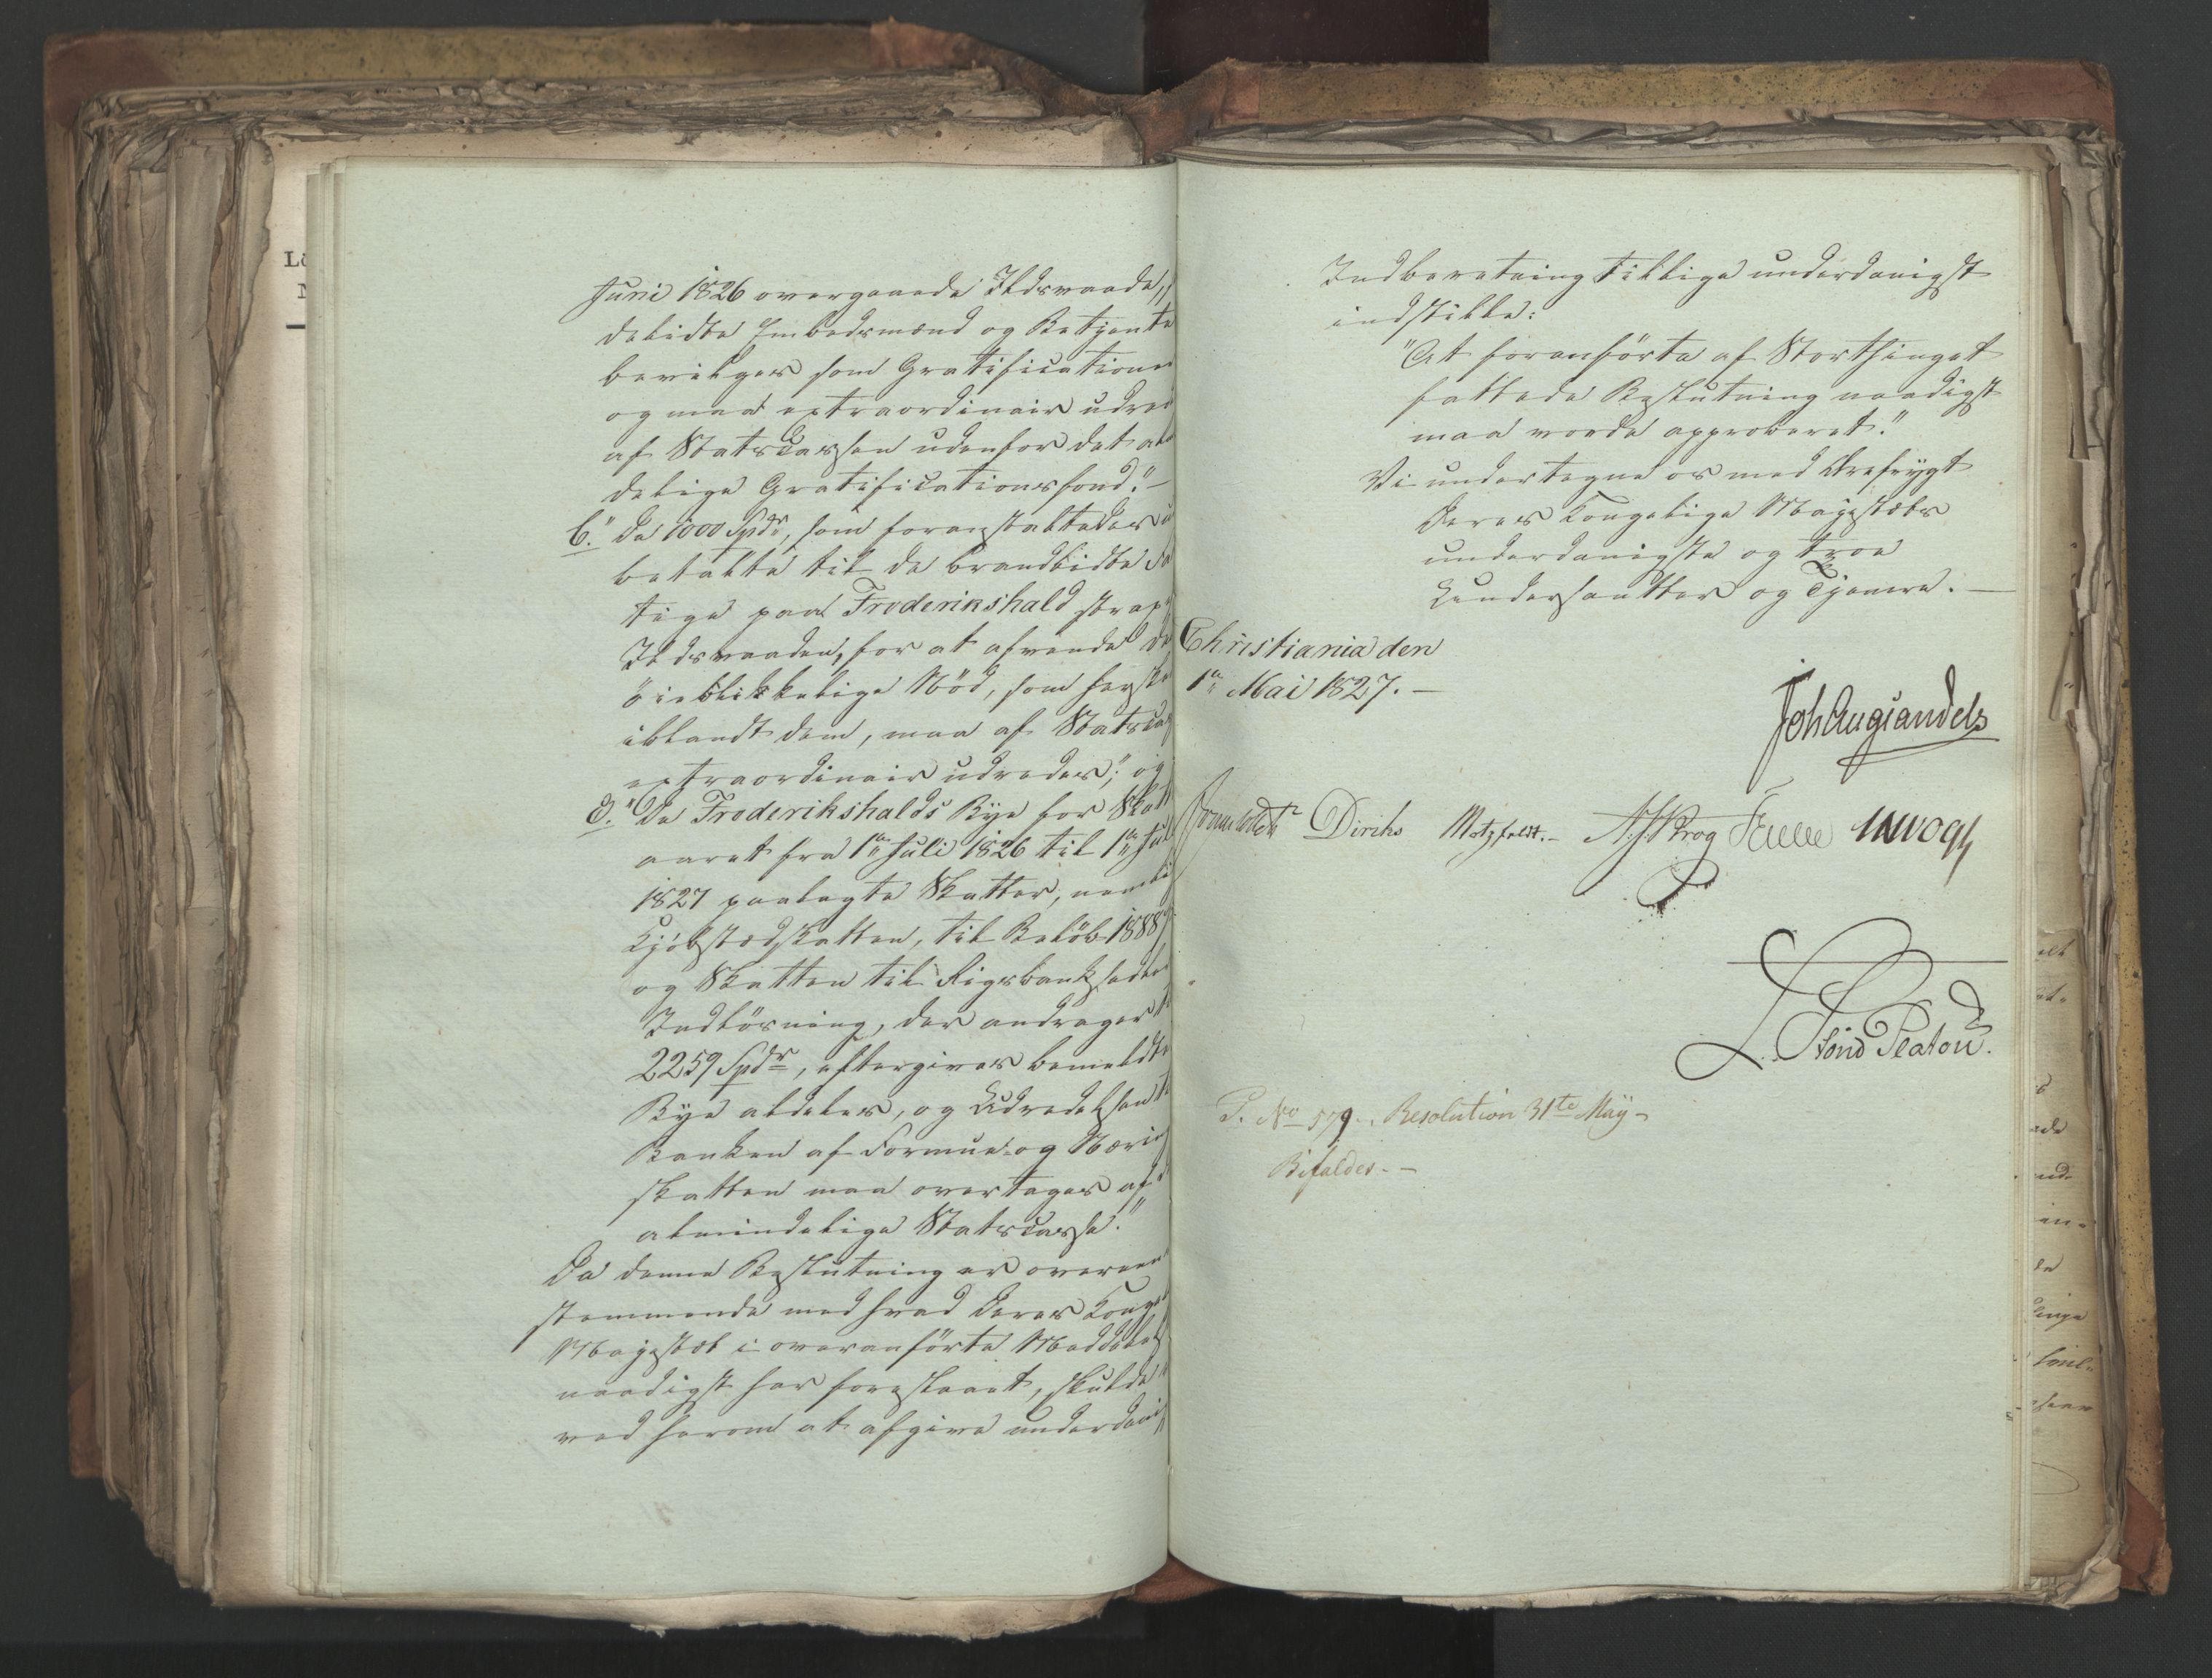 Juni 1826 overgaaede Ildsvaade,
delidte Embedsmænd og Betjente
bevilges som Gratificationer
og maa extraordinair udre
af Statscassen udenfor det al
delige Gratificationsfond." —
b. "De 1000 Spdr, som foranstaltedes u
betalte til de brandlidte
tige paa Frederikshald strax
Ildsvaaden, for at afvende de
öieblikkelige Nöd, som herske
iblandt dem, maa af Statscas
extraordinair udredes"; og
c. "De Frederikshalds Bye for Skatte
aaret fra 1ste Juli 1826 til 1ste Juli
1827 paalagte Skatter, nemli
Kjöbstadskatten, til Belöb 1888
og Skatten til Rigsbanksedler
Indlösning, der andrager t
2259 Spdr, eftergives bemeldte
Bye aldeles, og Udredelsen t
Banken af Formue- og Næring
skatten maa overtages af d
almindelige Statscasse."
Da denne Beslutning er overeen
stemmende med hvad Deres Konge
Majestæt i overanförte Meddelel
naadigst har foreslaaet, skulde
ved herom at afgive underdanig
Indberetning tillige underdanigst
indstille:
"At foranförte af Storthinget
fattede Beslutning naadigst
maa vorde approberet."
Vi undertegne os med Ærefrygt
Deres Kongelige Majestæts
underdanigste og troe
Undersaatter og Tjenere. —
Christiania den
1ste Mai 1827. —
Joh Aug Sandels
Diriks Motzfeldt. — Krog JHVogt
Lond Platou.
P. No 579. Resolution 31te Maÿ —
Bifaldes. —
Le